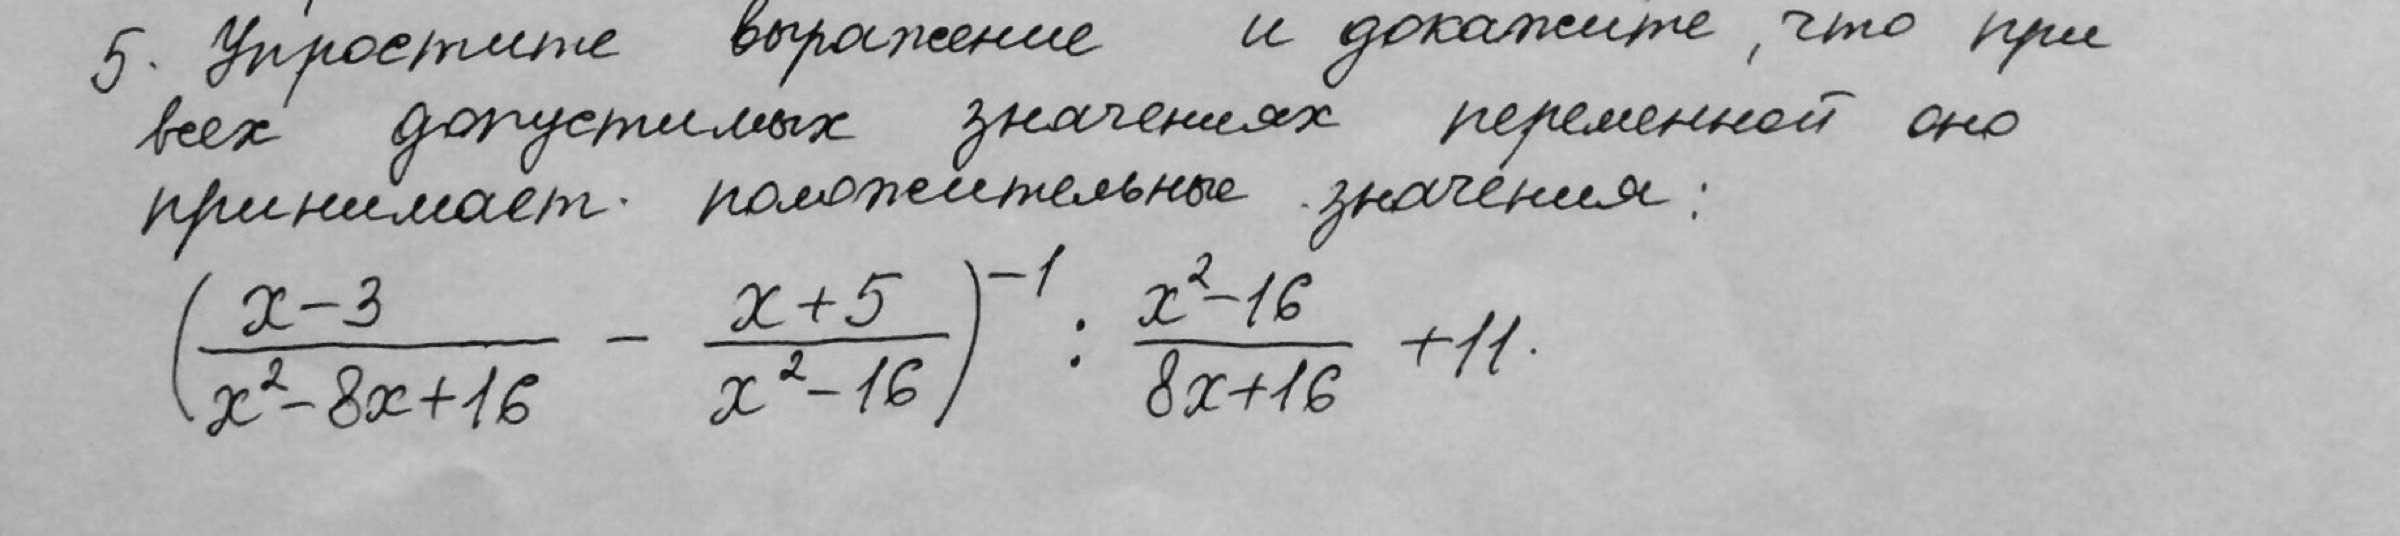 5. Упростите выражение и докажите, что при
всех допустимых значениях переменной оно
принимает положительные значения:
(\frac{x-3}{x^2-8x+16} - \frac{x+5}{x^2-16})^{-1} : \frac{x^2-16}{8x+16} +11.